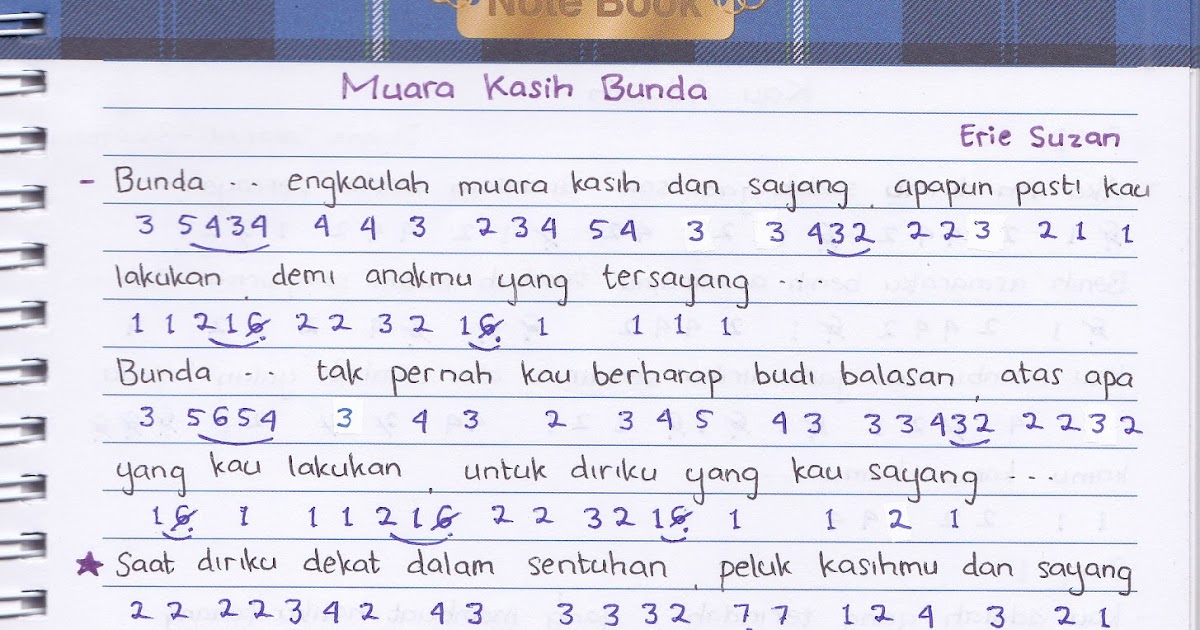 Note Book
Muara Kasih Bunda
Erie Suzan
- Bunda ... engkaulah muara kasih dan sayang, apapun pasti kau
3 5434 4 4 3 234 54 3 3 432 223 21 1
lakukan, demi anakmu yang tersayang ....
1 1 216 2 2 3 2 16 1 1 1 1
Bunda ... tak pernah kau berharap budi balasan, atas apa
3 5654 3 4 3 2 3 4 5 4 3 3 3 432 2 2 3 2
yang kau lakukan, untuk diriku yang kau sayang ...
16 1 1 1 216 2 2 3 2 16 1 1 2 1
★ Saat diriku dekat dalam sentuhan, peluk kasihmu dan sayang
2 2 2 2 3 4 2 4 3 3 3 3 2 7 7 1 2 4 3 2 1